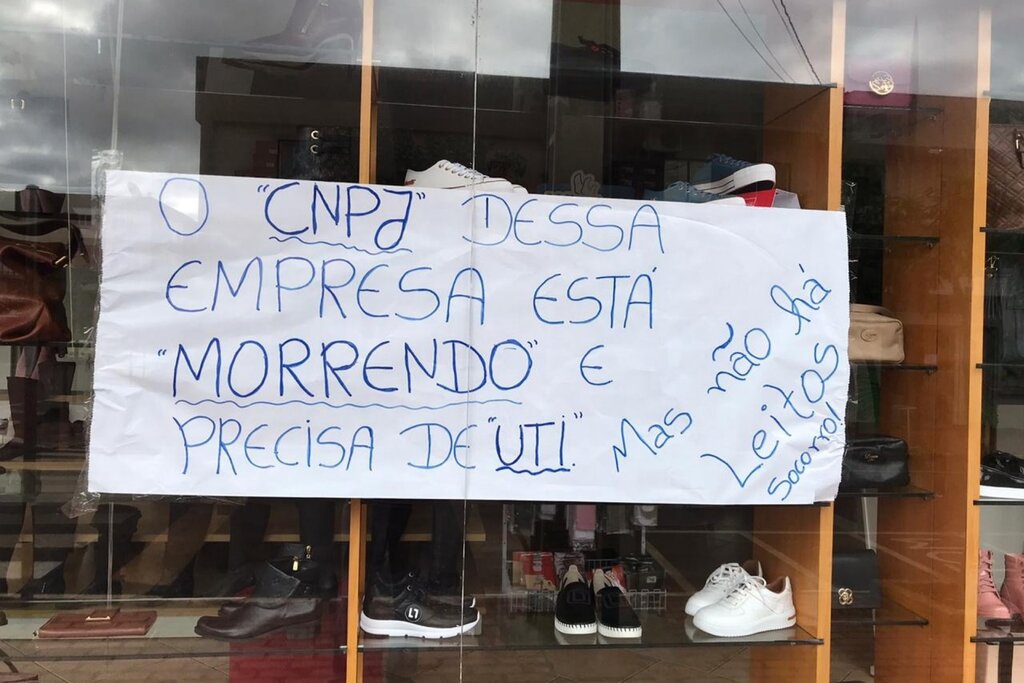 O "CNPJ" DESSA
EMPRESA ESTÁ
"MORRENDO" E
PRECISA DE "UTI".
Mas não há
Leitos
Socorro!